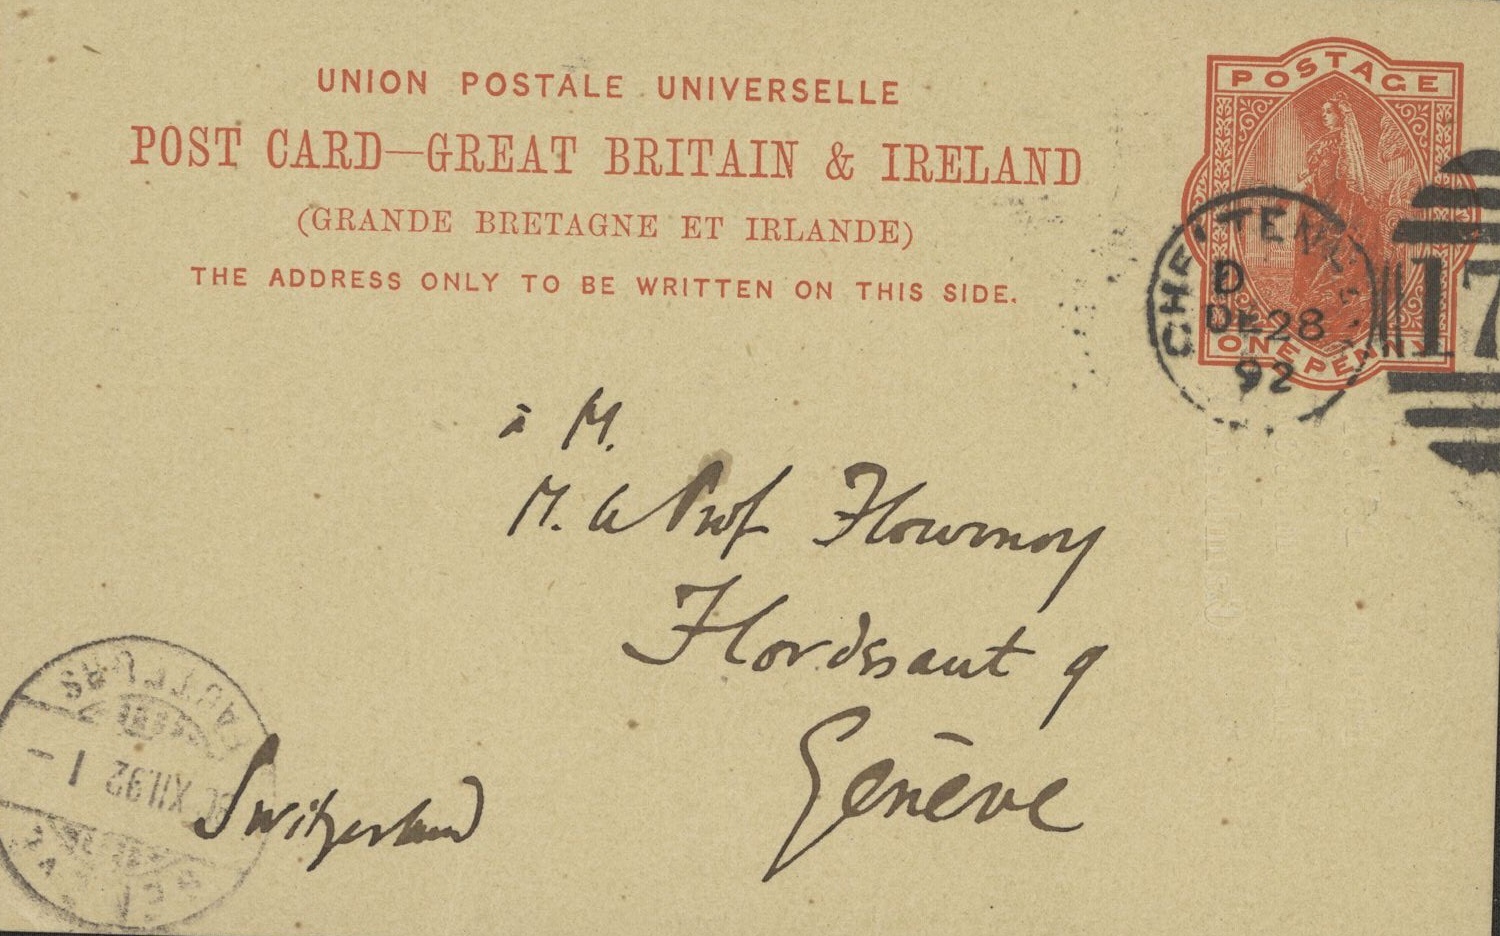 UNION POSTALE UNIVERSELLE
POST CARD—GREAT BRITAIN & IRELAND
(GRANDE BRETAGNE ET IRLANDE)
THE ADDRESS ONLY TO BE WRITTEN ON THIS SIDE.
POSTAGE
ONE PENNY
CHELTENHAM
D
DE 28
92
17
à M.
M. le Prof Flournoy
Florissant 9
Genève
Switzerland
XII.92 - 1